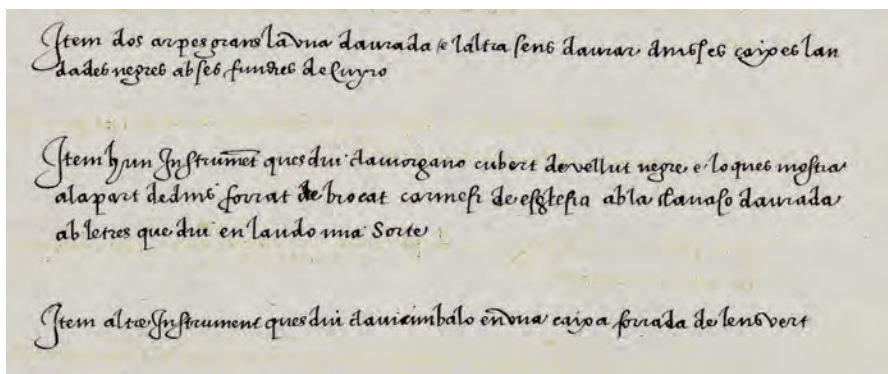 Item dos arpes grans la vna daurada e laltra sens daurar dins ses caixes lan
dades negres ab ses fundes de Cuyro
Item hun Instrumēt ques diu clauiorgano cubert de vellut negre e lo ques mostra
a la part de dins forrat de brocat carmesi de esglesia ab la clauaso daurada
ab letres que diu en laudo mia Sorte
Item altre Instrument ques diu clauicimbalo en vna caixa forrada de lens vert